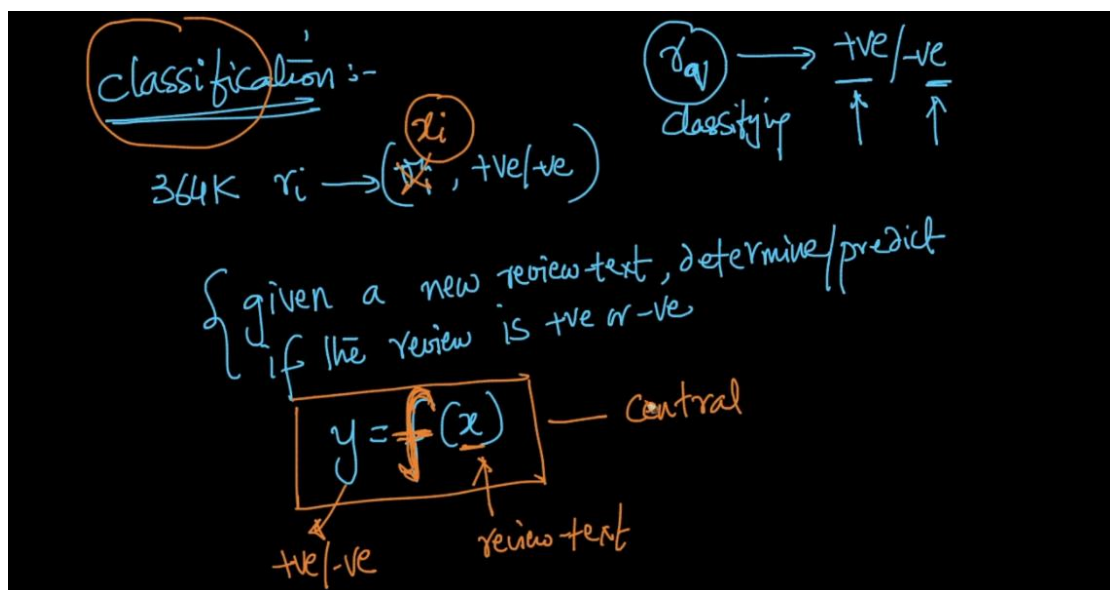 classification :-
r_q → +ve/-ve
classifying
x_i
364K r_i → ( , +ve/-ve)
given a new review text, determine/predict
if the review is +ve or -ve
y = f(x) — Central
+ve/-ve
review-text